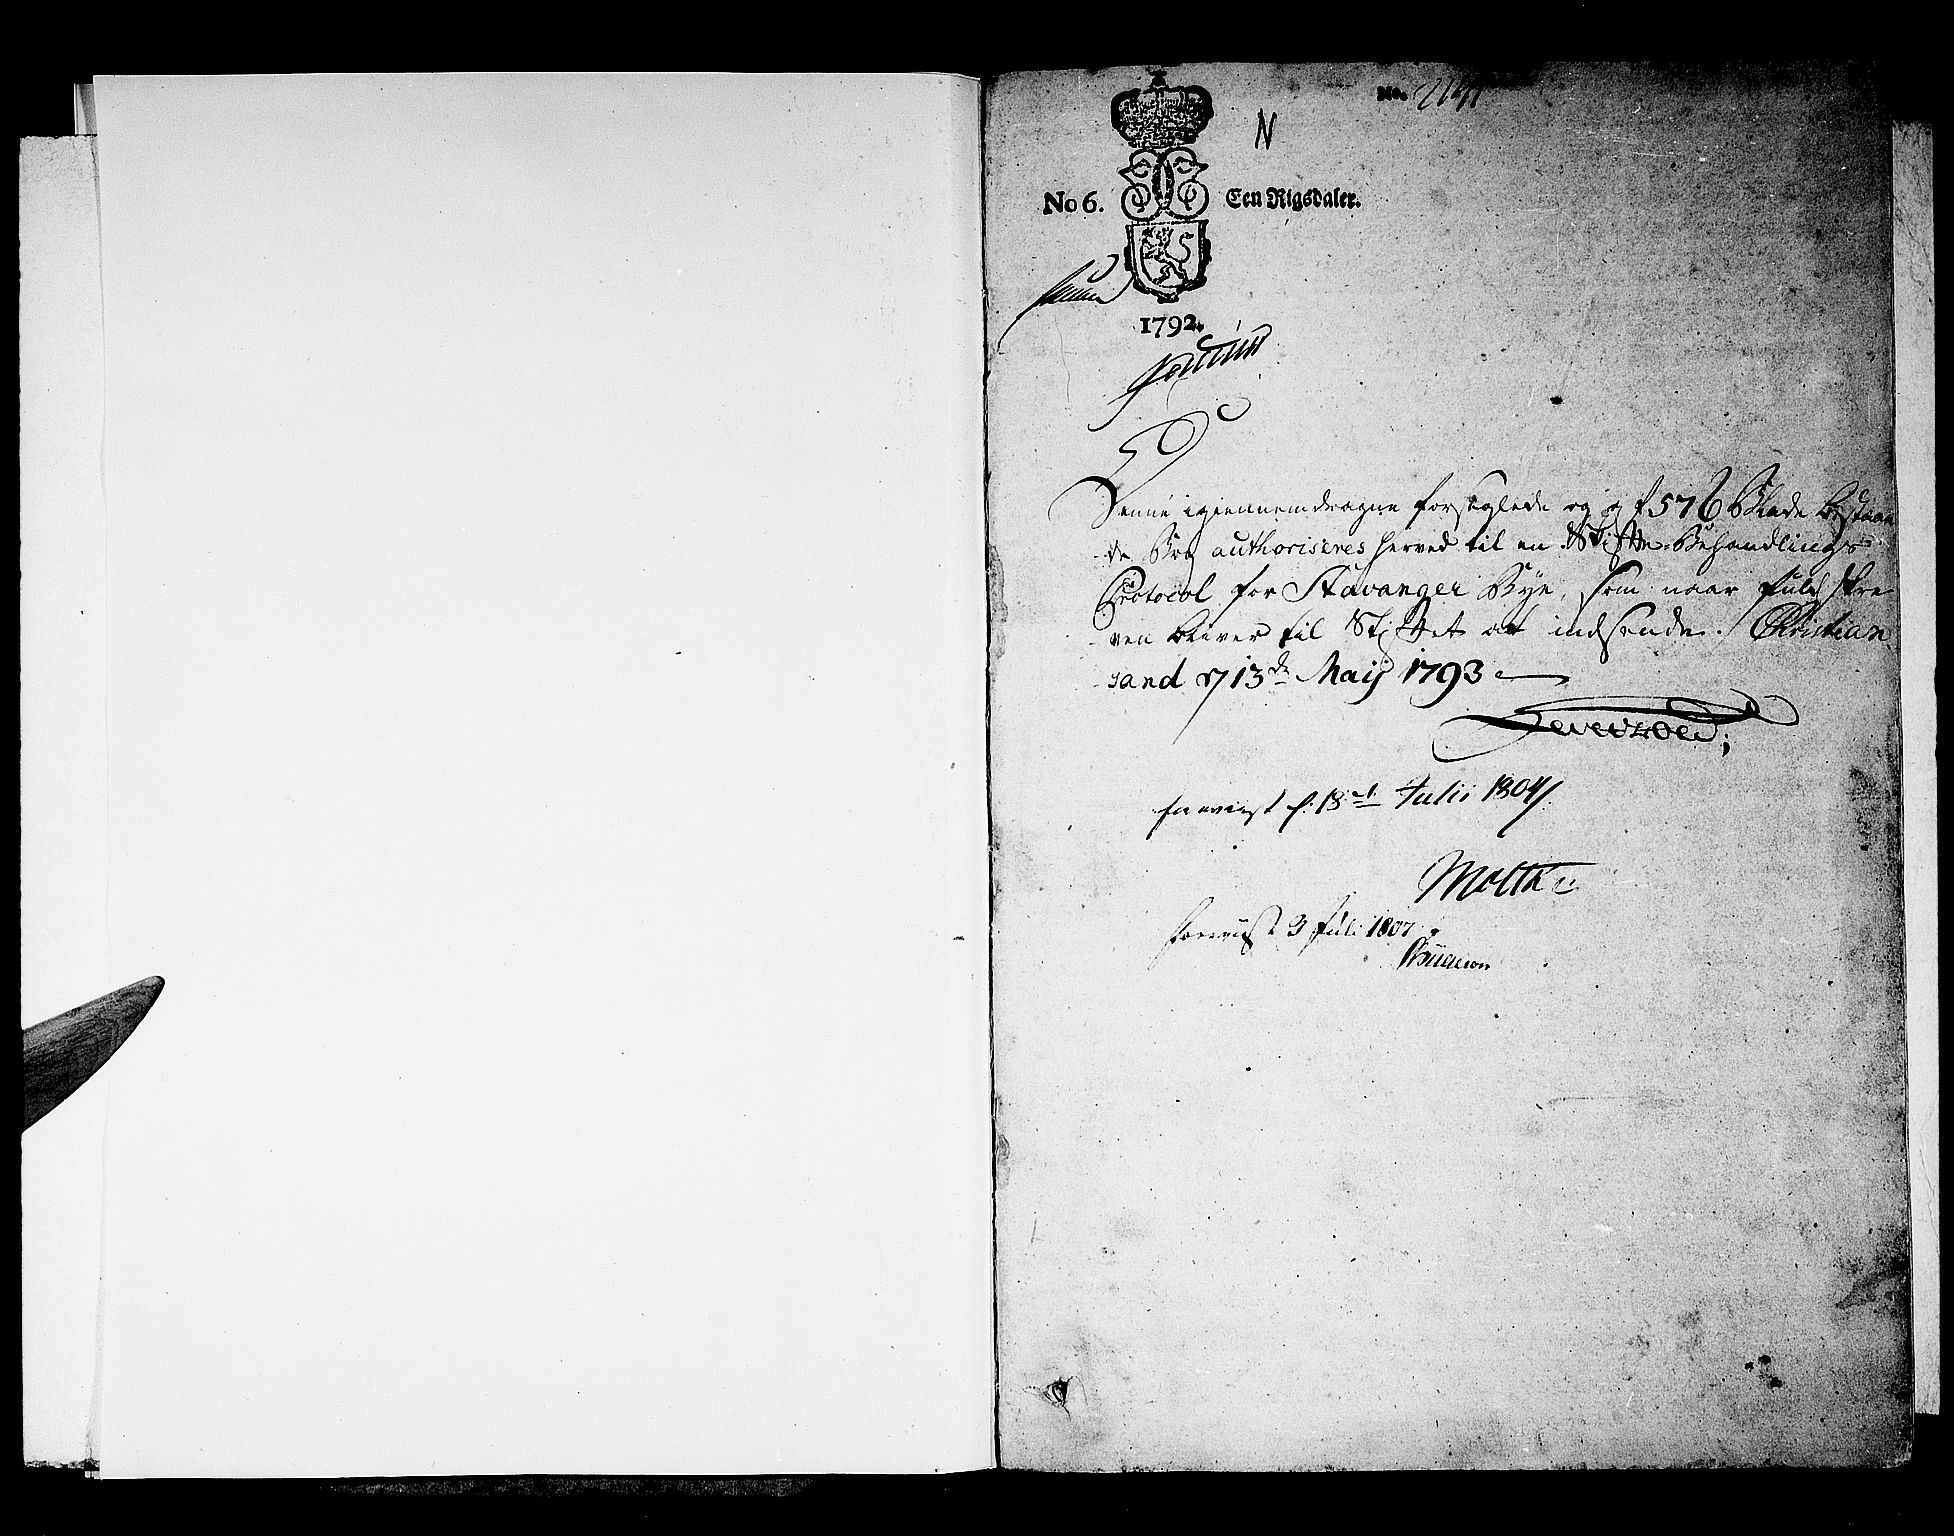 No. 
N
No 6. Een Rigsdaler.
1792.
Denne igiennemdragne forseglede og af 576 Blade bestaaen
de Bog authoriseres herved til en Skifte-Behandlings
Protocol for Stavanger Bye, som naar fuldskre
ven bliver til Stiftet at indsende. Christian
sand d 13de Maij 1793
Foreviist d: 18de Julii 1804
Moltke
Foreviist 3 Juli 1807